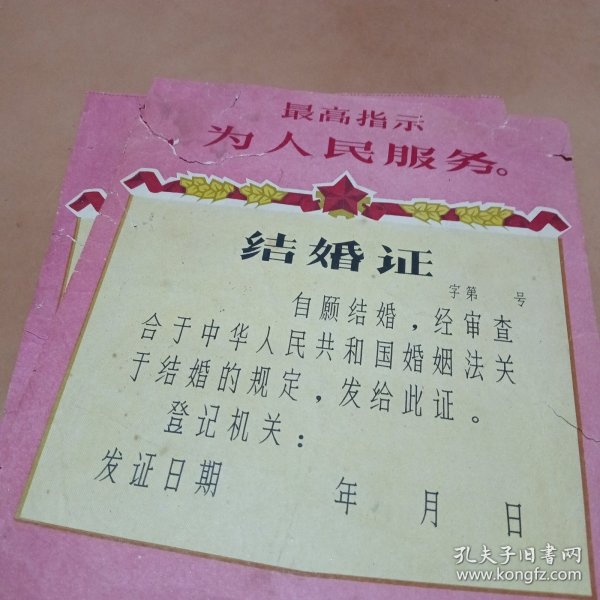 最高指示
为人民服务。
结婚证
字第 号
自愿结婚，经审查
合于中华人民共和国婚姻法关
于结婚的规定，发给此证。
登记机关：
发证日期 年 月 日
孔夫子旧书网
www.kongfz.com